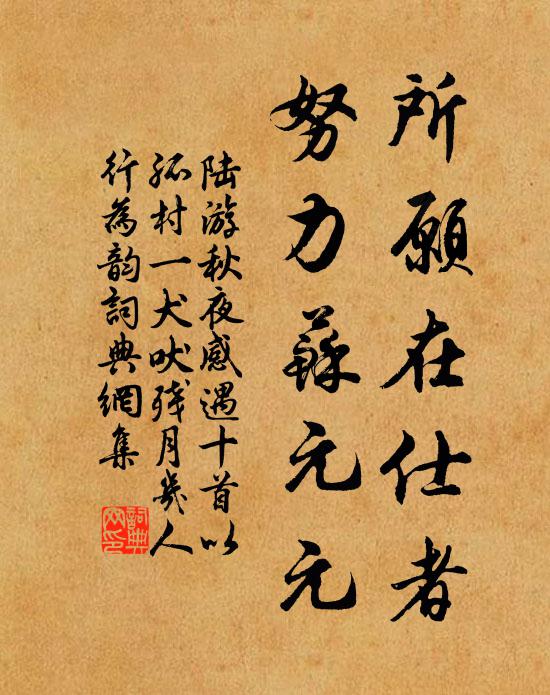 所願在仕者
努力蘇元元
陆游秋夜感遇十首以
孤村一犬吠残月幾人
行為韵詞典網集
詞典網印